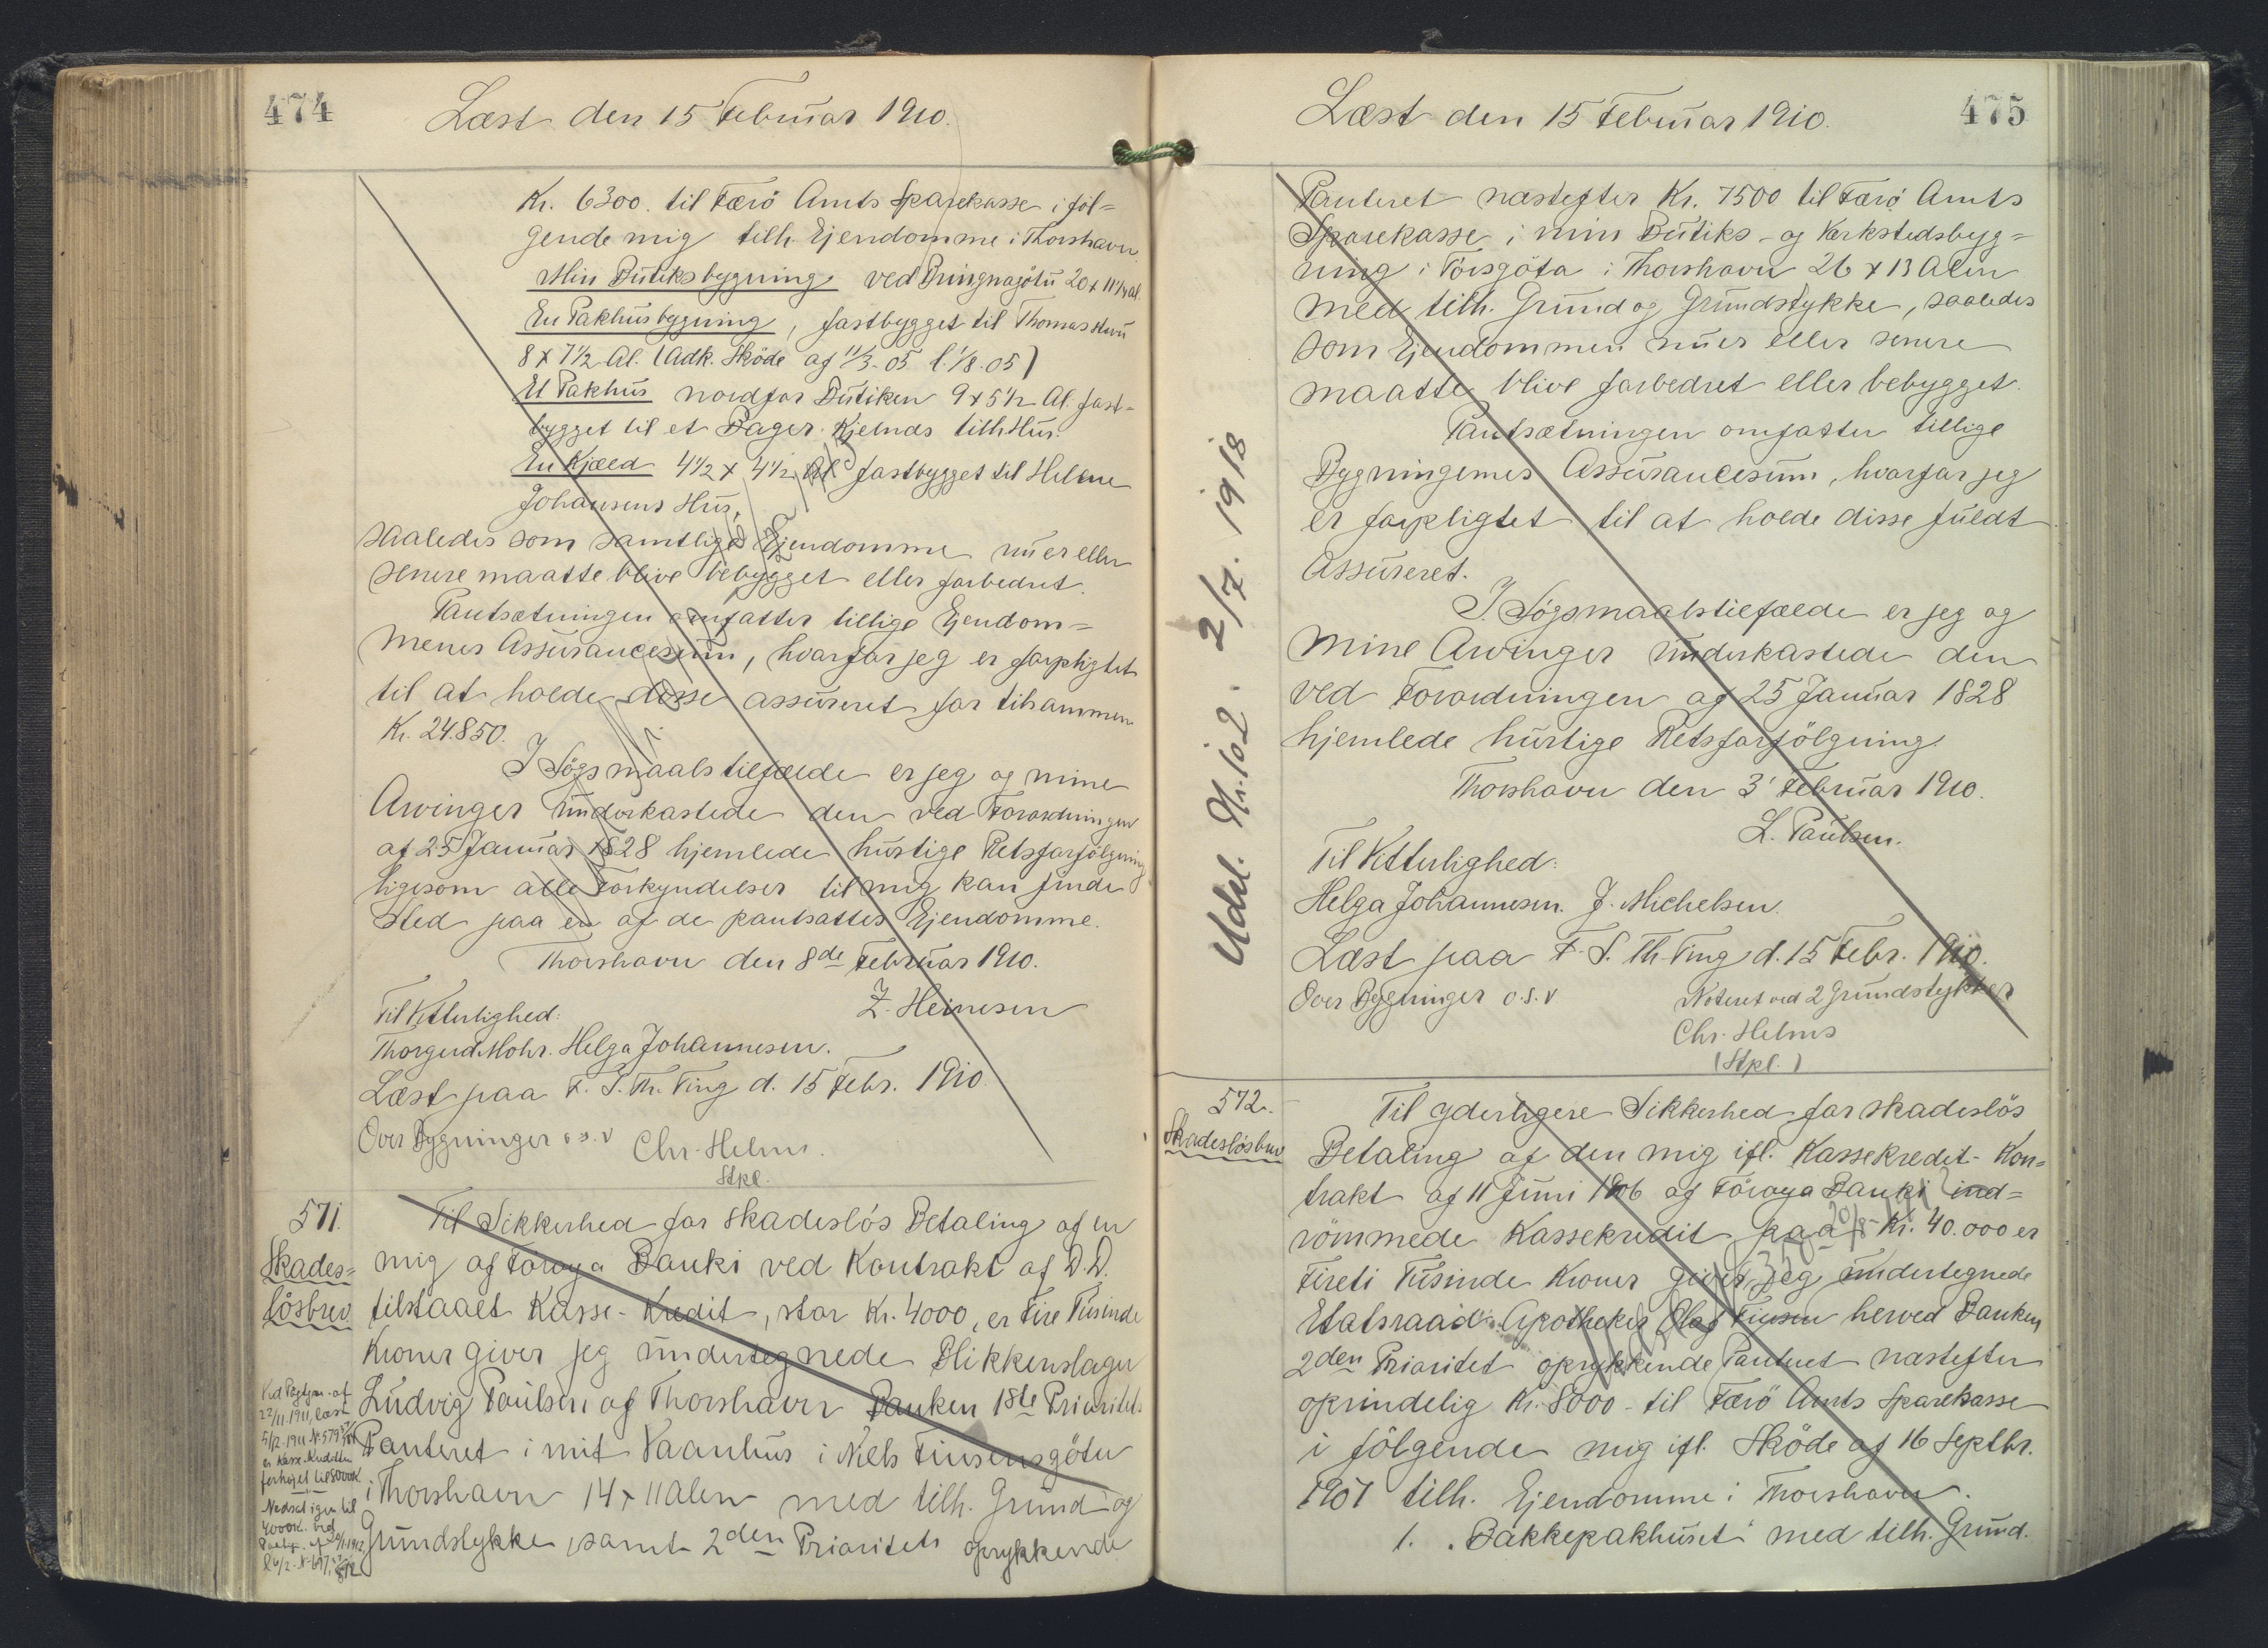 474
Læst den 15 Februar 1910.
Kr. 6300. til Færö Amts Sparekasse i föl=
gende mig tilh. Ejendomme i Thorshavn.
Min Butiksbygning ved Bringnagötu 20 x 11 1/4 al.
En Pakhusbygning, fastbygget til Thomasstuu
8 x 7 1/2 Al. (Adk. Sköde af 11/3-05 l. 1/8.05)
Et Pakhus nordfor Butiken 9 x 5 1/2 Al. fast-
bygget til et Bager Kjelnds tilh. Hus.
En Kjæld 4 1/2 x 4 1/2 Al fastbygget til Helene
Johansens Hus,
saaledes som samtlige Ejendomme nu er eller
senere maatte blive bebygget eller forbedret.
Pantsætningen omfatter tillige Ejendom=
menes Assurancesum, hvorfor jeg er forpligtet
til at holde disse assureret for tilsammen
Kr. 24.850.
I Sögsmaalstilfælde er jeg og mine
Arvinger underkastede den ved Forordningen
af 25 Januar 1828 hjemlede hurtige Retsforfölgning
ligesom alle Forkyndelser til mig kan finde
Sted paa en af de pantsatte Ejendomme.
Thorshavn den 8de Februar 1910.
Z. Heinesen
Til Vitterlighed:
Thorgerd Mohr. Helga Johannesen.
Læst paa F. S. Th. Ting d. 15 Febr. 1910
Over Bygninger o.s.v Chr. Helms.
Stpl.
571.
Skades=
lösbrev
Til Sikkerhed for skadeslös Betaling af en
mig af Föroya Banki ved Kontrakt af D.D.
tilstaaet Kasse-Kredit, stor Kr. 4000, er Fire Tusinde
Kroner giver jeg undertegnede Blikkenslager
Ludvig Paulsen af Thorshavn Banken 1ste Prioritets
Panteret i mit Vaanhus i Niels Finsensgötu
i Thorshavn 14 x 11 Alen med tilh. Grund og
Grundstykke, samt 2den Prioritets oprykkende
Ved Pategn. af
22/11-1911, læst
5/12-1911 N. 579
er Kasse-Kreditten
forhöjet til 8000 K.
Nedsat igen til
4000 K. ved
475
Læst den 15 Februar 1910.
Panteret næstefter Kr. 7500 til Færö Amts
Sparekasse i min Butiks- og Værkstedsbyg=
ning i Törsgöta i Thorshavn 26 x 13 Alen
med tilh. Grund og Grundstykke, saaledes
som Ejendommen nu er eller senere
maatte blive forbedret eller bebygget.
Pantsætningen omfatter tillige
Bygningernes Assurancesum, hvorfor jeg
er forpligtet til at holde disse fuldt
assureret.
I Sögsmaalstilfælde er jeg og
mine Arvinger underkastede den
ved Forordningen af 25 Januar 1828
hjemlede hurtige Retsforfölgning
Thorshavn den 3' Februar 1910.
L. Paulsen.
Til Vitterlighed:
Helga Johannesen. J. Michelsen.
Læst paa F. S. Th Ting d. 15 Febr. 1910.
Over Bygninger o.s.v Noteret ved 2 Grundstykker
Chr. Helms
(Stpl.)
Udsl. N. 102. 2/7. 1918
572.
Skadeslösbrev
Til yderligere Sikkerhed for skadeslös
Betaling af den mig ifl. Kassekredit-Kon=
trakt af 11 Juni 1906 af Föroya Banki ind=
römmede Kassekredit paa Kr. 40.000 er
Fireti Tusinde Kroner giver jeg undertegnede
Etatsraad Apotheker Olaf Finsen herved Banken
2den Prioritet oprykkende Panteret næstefter
oprindelig Kr. 8000 - til Færö Amts Sparekasse
i fölgende mig ifl. Sköde af 16 Septbr.
1907 tilh. Ejendomme i Thorshavn.
1. "Bakkepakhuset" med tilh. Grund.